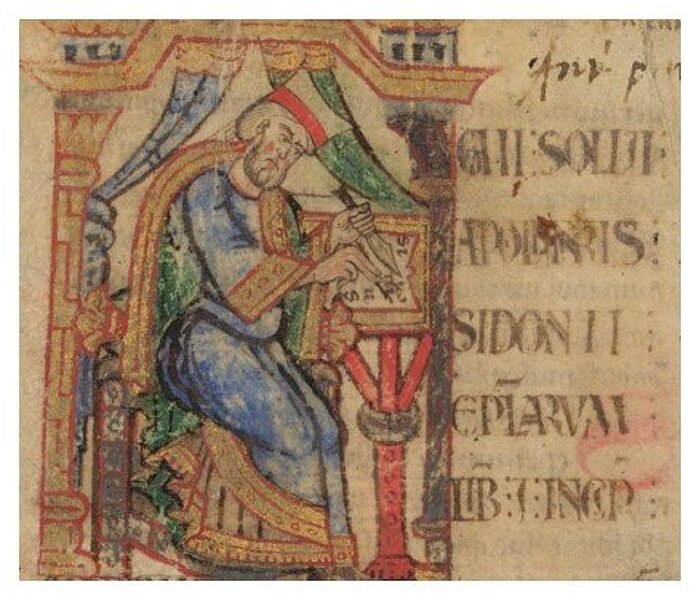 GAII : SOLLII :
APOLINARIS :
SIDONII :
EPL̅ARVM :
LIB̅ : I : INCIP̅ :